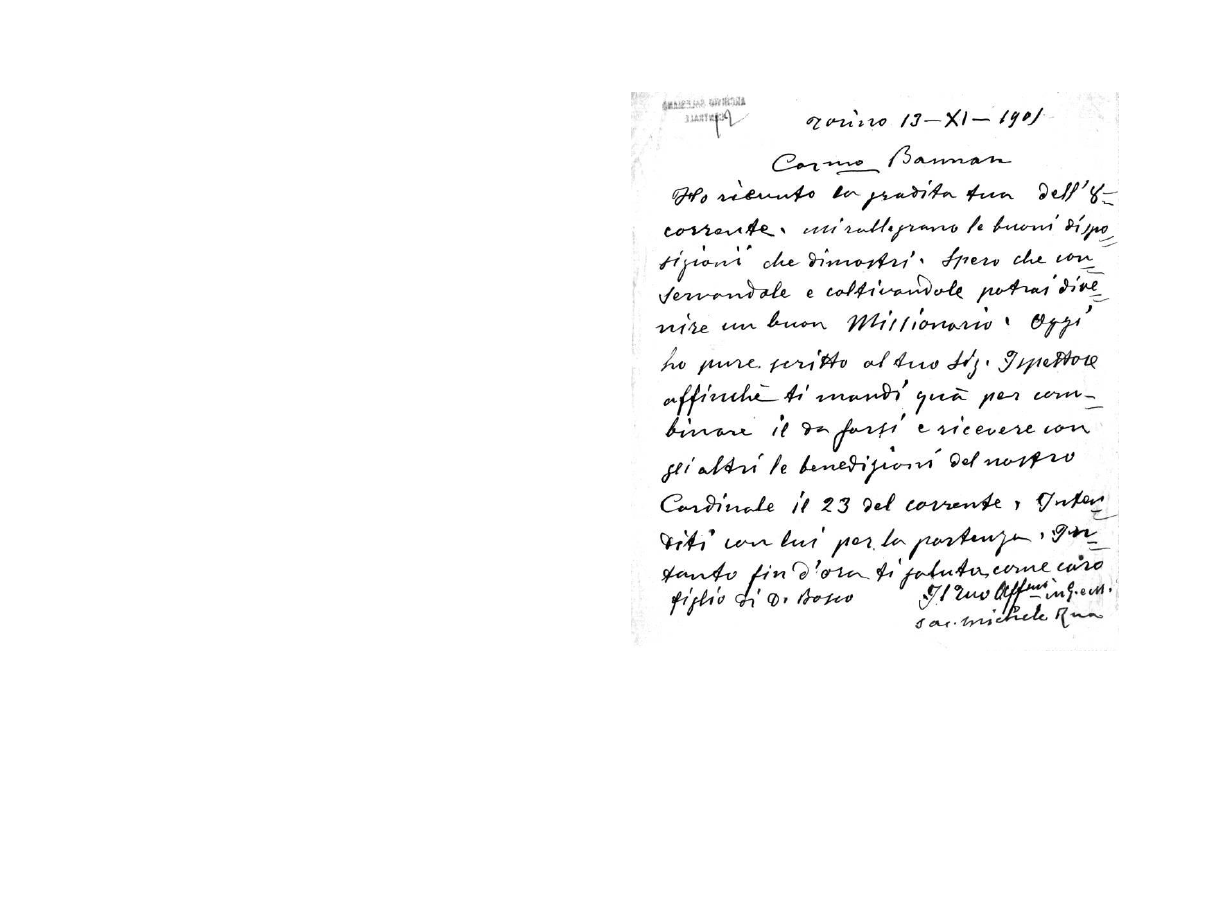 ARCHIVIO SALESIANO
CENTRALE
Torino 13-XI-1901
Carmo Bannan
Ho ricevuto la gradita tua dell'8
corrente. mi rallegrano le buoni dispo=
sizioni che dimostri. Spero che con=
servandole e coltivandole potrai dive=
nire un buon Missionario. Oggi
ho pure scritto al tuo Sig. Ispettore
affinchè ti mandi quà per com=
binare il da farsi e ricevere con
gli altri le benedizioni del nostro
Cardinale il 23 del corrente. Inten=
diti con lui per la partenza. In=
tanto fin d'ora ti saluta come caro
figlio di D. Bosco
Il tuo Aff.mo in G. e M.
Sac. Michele Rua